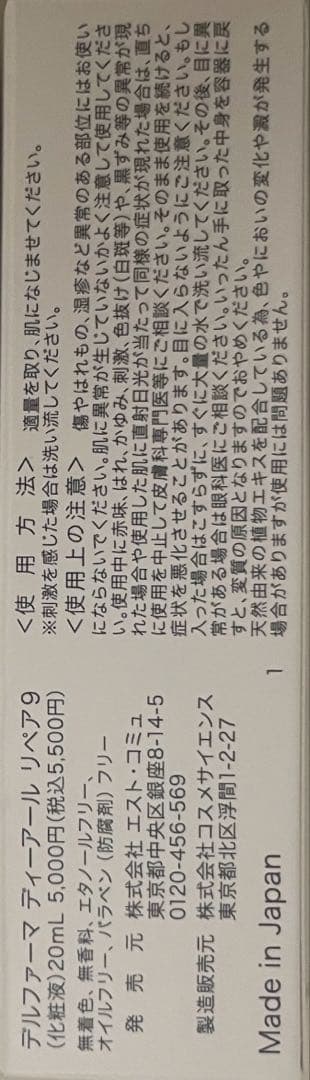 デルファーマ ディーアール リペア9
(化粧液)20mL 5,000円(税込5,500円)
無着色、無香料、エタノールフリー、
オイルフリー、パラベン(防腐剤)フリー
発売元 株式会社 エスト・コミュ
東京都中央区銀座8-14-5
0120-456-569
製造販売元 株式会社コスメサイエンス
東京都北区浮間1-2-27
Made in Japan 1
<使用方法> 適量を取り、肌になじませてください。
※刺激を感じた場合は洗い流してください。
<使用上の注意> 傷やはれもの、湿疹など異常のある部位にはお使い
にならないでください。肌に異常が生じていないかよく注意して使用してくださ
い。使用中に赤味、はれ、かゆみ、刺激、色抜け(白斑等)や、黒ずみ等の異常が現
れた場合や使用した肌に直射日光が当たって同様の症状が現れた場合は、直ち
に使用を中止して皮膚科専門医等にご相談ください。そのまま使用を続けると、
症状を悪化させることがあります。目に入らないようにご注意ください。もし
入った場合はこすらずに、すぐに大量の水で洗い流してください。その後、目に異
常がある場合は眼科医にご相談ください。いったん手に取った中身を容器に戻
すと、変質の原因となりますのでおやめください。
天然由来の植物エキスを配合している為、色やにおいの変化や澱が発生する
場合がありますが使用には問題ありません。